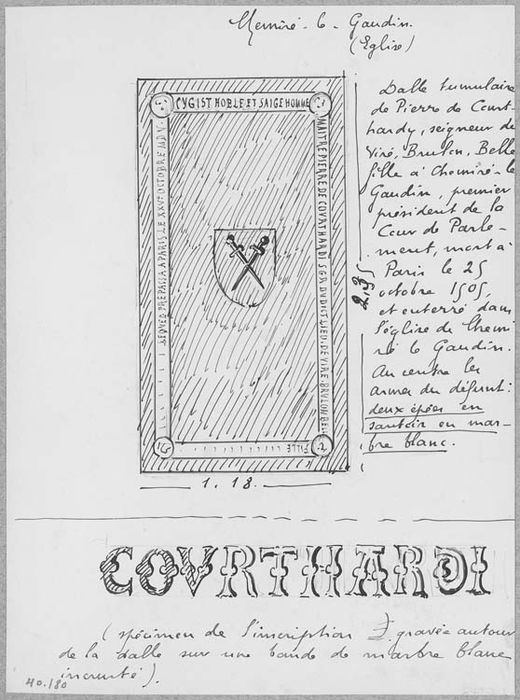 Chemiré-le-Gaudin.
(Eglise)
CYGIST NOBLE ET SAIGE HOMME
MAITRE PIERRE DE COVRTHARDI SGR DVDICT LIEV DE VIRE BRVLON BEL
FILLE
LEQVEL TREPASSA A PARIS LE XXVe OCTOBRE MDV
Dalle tumulaire
de Pierre de Court
hardy, seigneur de
Viré, Brulon, Belle
fille à Chemiré-le
Gaudin, premier
président de la
Cour de Parle-
ment, mort à
Paris le 25
octobre 1505,
et enterré dans
l'église de Chemi
ré le Gaudin.
Au centre les
armes du défunt:
deux épées en
sautoir en mar-
bre blanc.
2,35
1.18.
COVRTHARDI
(spécimen de l'inscription gravée autour
de la dalle sur une bande de marbre blanc
incrusté).
40.180